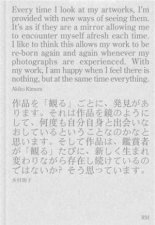 Every time I look at my artworks, I'm
provided with new ways of seeing them.
It's as if they are a mirror allowing me
to encounter myself afresh each time.
I like to think this allows my work to be
re-born again and again whenever my
photographs are experienced. With
my work, I am happy when I feel there is
nothing, but at the same time everything.
Akiko Kimura
作品を「観る」ごとに、発見があ
ります。それは作品を鏡のように
して、何度も自分自身と出会いな
おしているということなのかなと
思います。そして作品は、鑑賞者
が「観る」たびに、新しく生まれ
変わりながら存在し続けているの
ではないか？そう思っています。